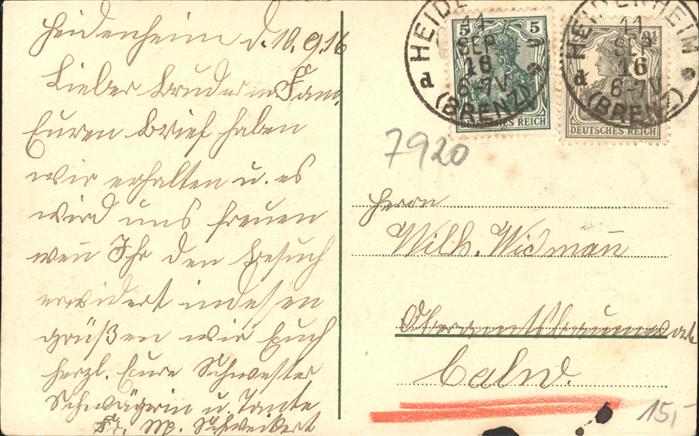 Heidenheim d. 10.9.16
Lieber Bruder u. Fam.
Euren Brief haben
wir erhalten u. es
wird uns freuen
wen Ihr den Besuch
erwidert indessen
grüßen wir Euch
herzl. Eure Schwester
Schwägerin u. Tante
Fr. M. Schweikert
5
5
HEIDE
11
SEP
16
6-7V
(BRENZ)
d
DEUTSCHES REICH
HEIDENHEIM
11
SEP
16
6-7V
(BRENZ)
d
DEUTSCHES REICH
7920
Herrn
Wilh. Widman
Calw.
15,-